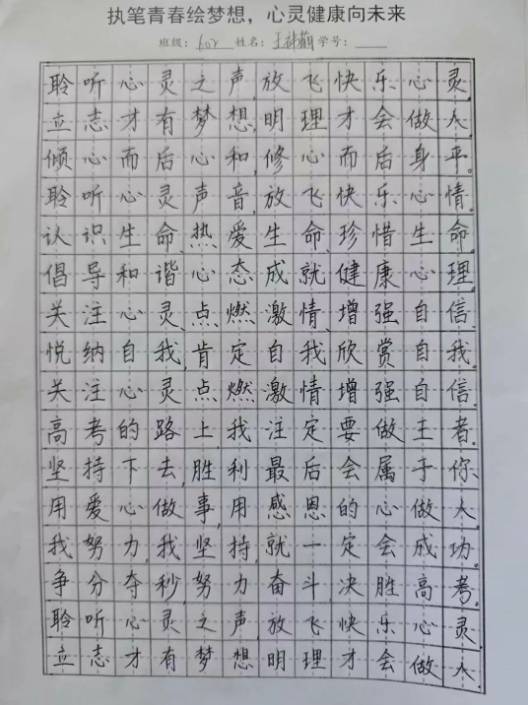 执笔青春绘梦想，心灵健康向未来
班级：602 姓名：王 萌 学号：
聆听心灵之声，放飞快乐心灵。
立志才有梦想，明理才会做人。
倾心而后心和，修心而后身平。
聆听心灵声音，放飞快乐心情。
认识生命、热爱生命、珍惜生命
倡导和谐心态成就健康心理。
关注心灵、点燃激情、增强自信。
悦纳自我，肯定自我欣赏自我。
关注心灵点燃激情增强自信。
高考的路上，我注定要做王者。
坚持下去，胜利最后会属于你、
用爱心做事，用感恩的心做人。
我努力，我坚持，就一定会成功。
争分夺秒，努力奋斗，决胜高考，
聆听心灵之声，放飞快乐心灵。
立志才有梦想明理才会做人